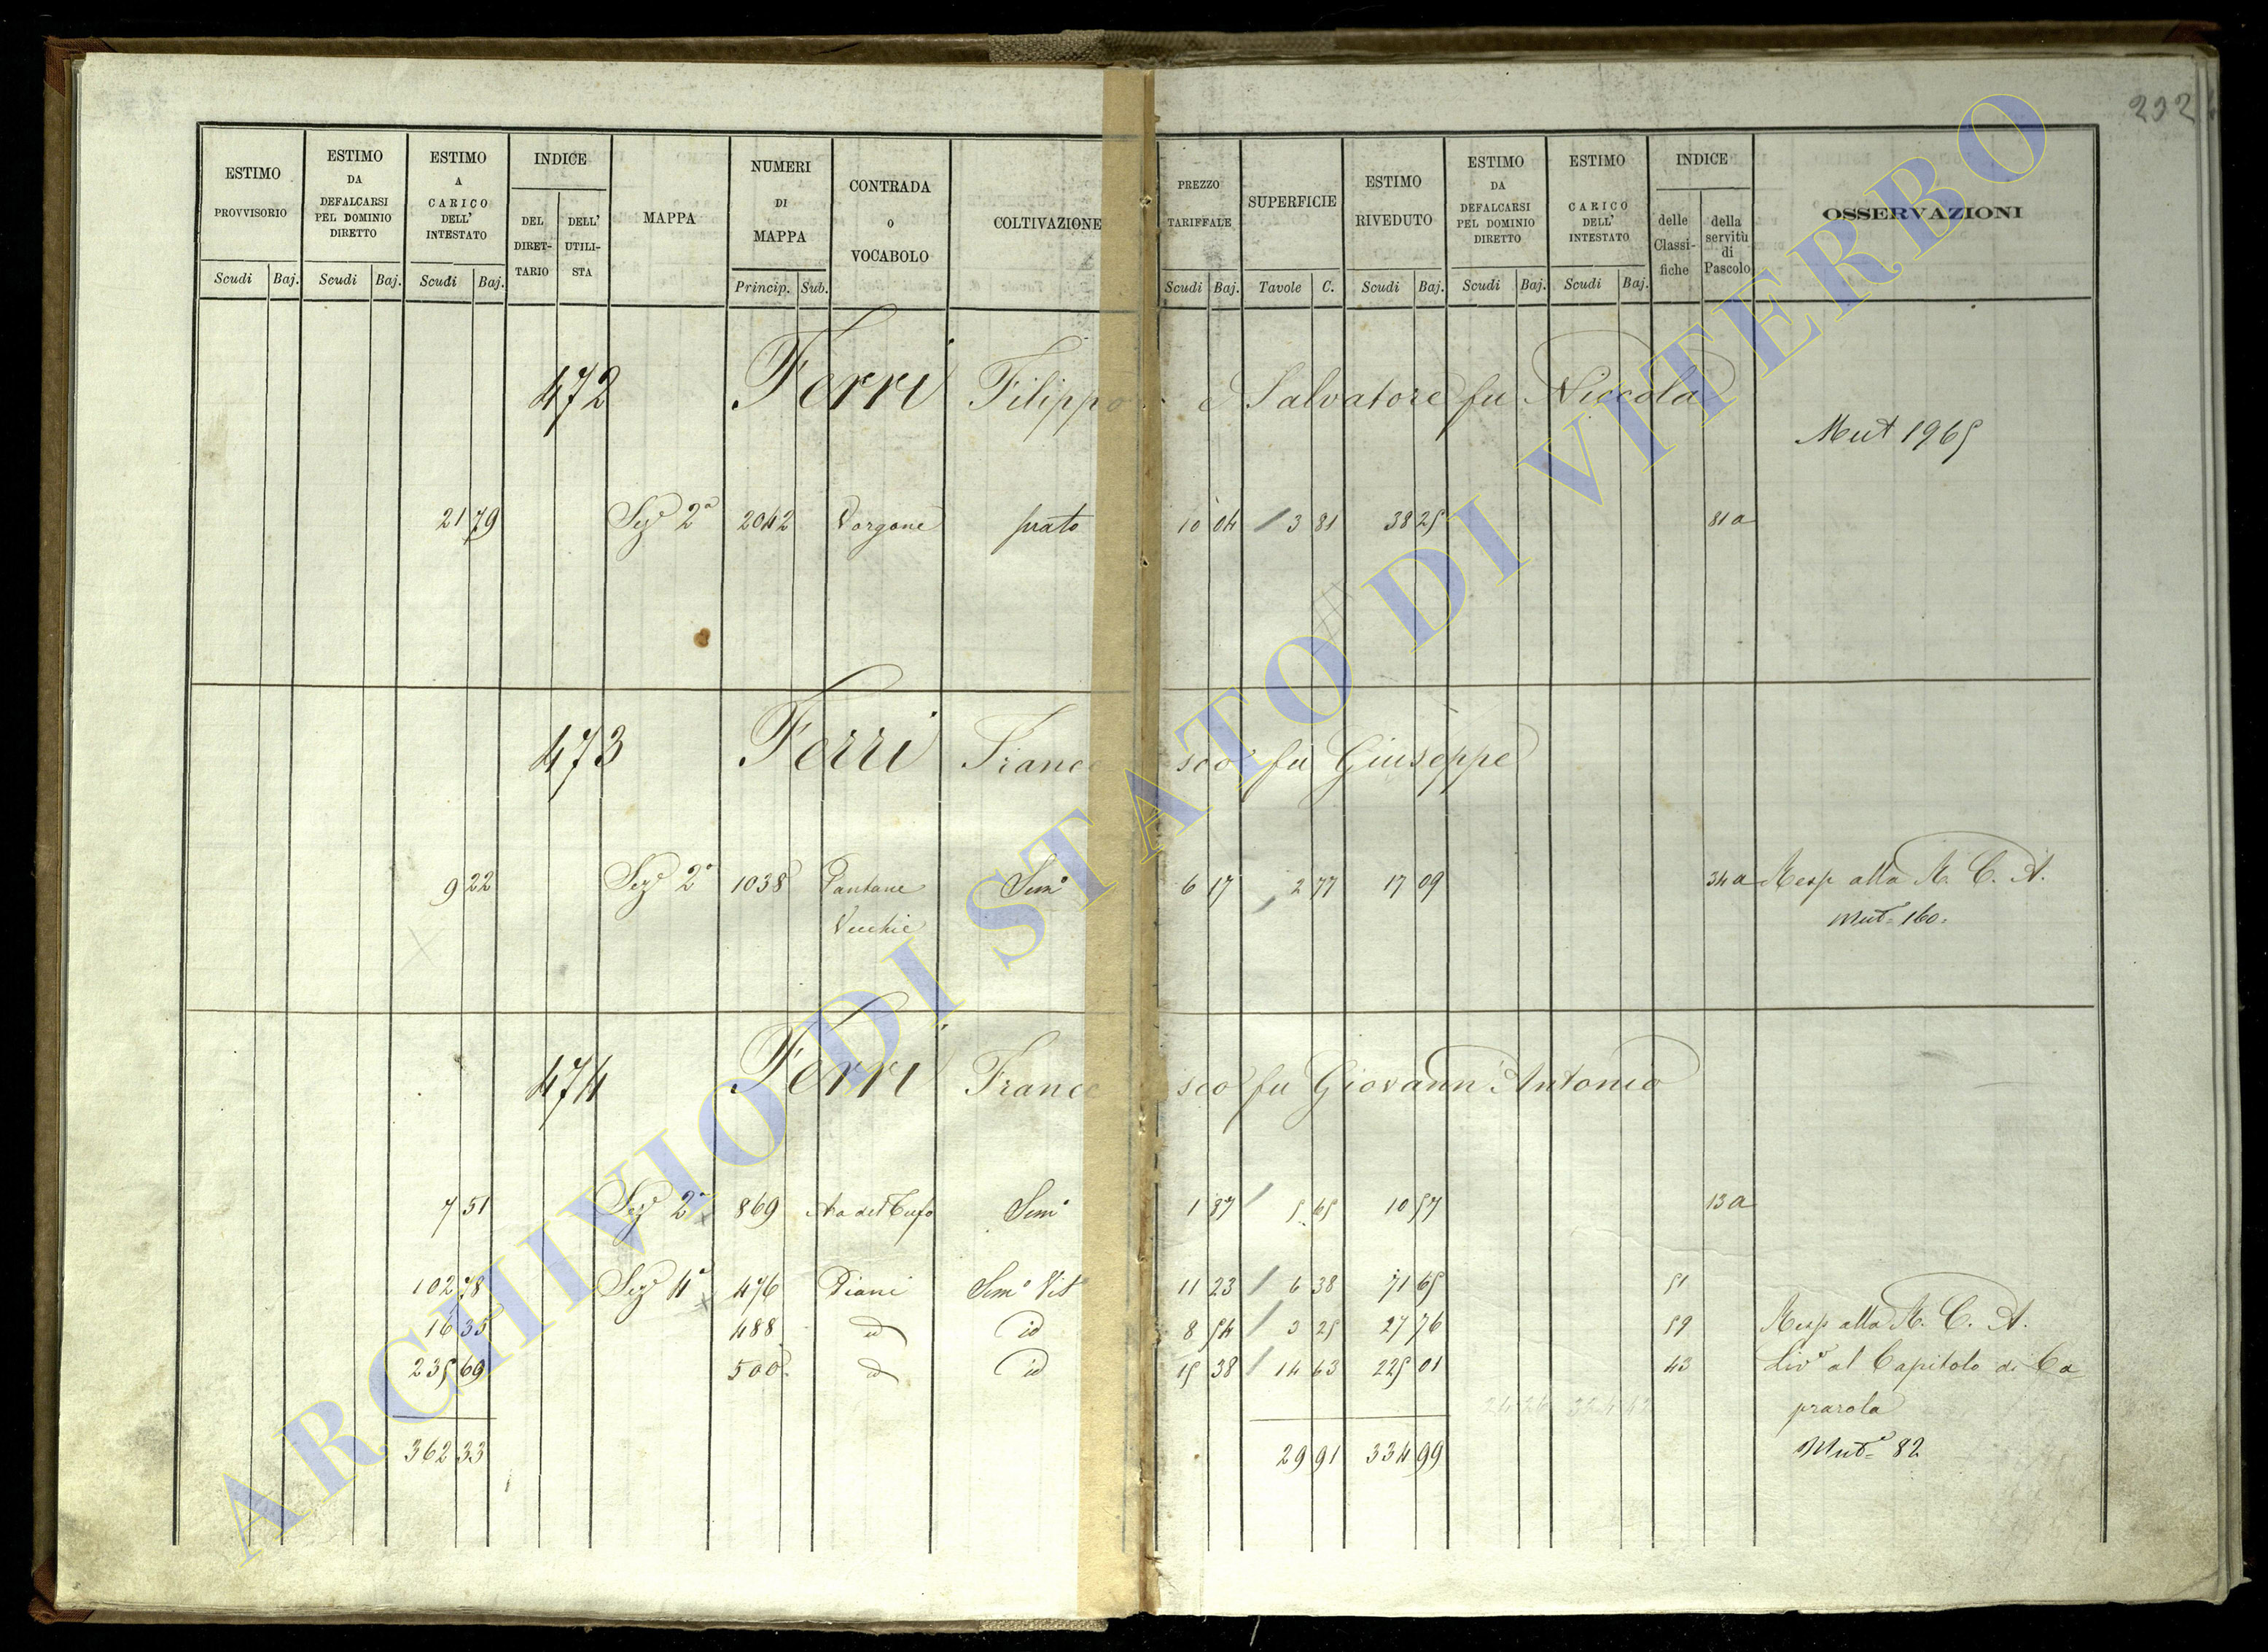 232
ESTIMO PROVVISORIO Scudi Baj.
ESTIMO DA DEFALCARSI PEL DOMINIO DIRETTO Scudi Baj.
ESTIMO A CARICO DELL' INTESTATO Scudi Baj.
INDICE DEL DIRET-TARIO DELL' UTILI-STA
MAPPA
NUMERI DI MAPPA Princip. Sub.
CONTRADA o VOCABOLO
COLTIVAZIONE
PREZZO TARIFFALE Scudi Baj.
SUPERFICIE Tavole C.
ESTIMO RIVEDUTO Scudi Baj.
ESTIMO DA DEFALCARSI PEL DOMINIO DIRETTO Scudi Baj.
ESTIMO A CARICO DELL' INTESTATO Scudi Baj.
INDICE delle Classi-fiche della servitù di Pascolo
OSSERVAZIONI
472 Ferri Filippo e Salvatore fu Niccola
Mut 1965
21 79 Seze 2a 2042 Vorgone prato 10 04 3 81 38 25 81a
473 Ferri Francesco fu Giuseppe
9 22 Seze 2a 1038 Pantane Semo 6 17 2 77 17 09 34a Resp alla R. C. A.
Vecchie Mute 160.
474 Ferri Francesco fu Giovann Antonio
7 51 Seze 2a 869 Ara del Tufo Semo 1 87 5 65 10 57 13a
102 78 Seze 4a 476 Piani Semo Vit 11 23 6 38 71 65 51
16 35 488 id id 8 54 3 25 27 76 59 Resp alla R. C. A.
235 69 500 id id 15 38 14 63 225 01 43 Livo al Capitolo di Ca
prarola
362 33 29 91 334 99 Mute 82
ARCHIVIO DI STATO DI VITERBO